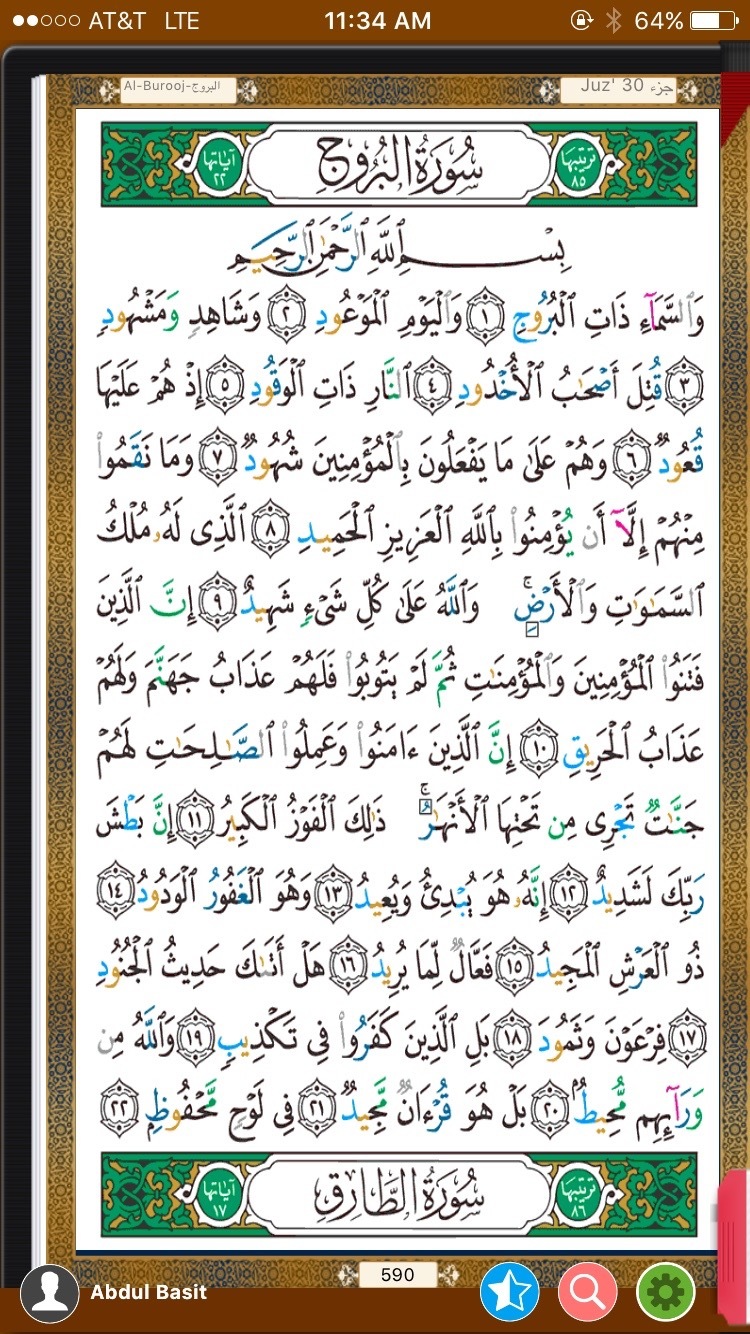 AT&T LTE 11:34 AM 64%
Al-Burooj-البروج Juz' 30 جزء
ترتيبها ٨٥ سُورَةُ البُرُوجِ آياتها ٢٢
بِسْمِ ٱللَّهِ ٱلرَّحْمَٰنِ ٱلرَّحِيمِ
وَٱلسَّمَآءِ ذَاتِ ٱلْبُرُوجِ ١ وَٱلْيَوْمِ ٱلْمَوْعُودِ ٢ وَشَاهِدٍ وَمَشْهُودٍ
٣ قُتِلَ أَصْحَٰبُ ٱلْأُخْدُودِ ٤ ٱلنَّارِ ذَاتِ ٱلْوَقُودِ ٥ إِذْ هُمْ عَلَيْهَا
قُعُودٌ ٦ وَهُمْ عَلَىٰ مَا يَفْعَلُونَ بِٱلْمُؤْمِنِينَ شُهُودٌ ٧ وَمَا نَقَمُوا۟
مِنْهُمْ إِلَّآ أَن يُؤْمِنُوا۟ بِٱللَّهِ ٱلْعَزِيزِ ٱلْحَمِيدِ ٨ ٱلَّذِى لَهُۥ مُلْكُ
ٱلسَّمَٰوَٰتِ وَٱلْأَرْضِ ۚ وَٱللَّهُ عَلَىٰ كُلِّ شَىْءٍ شَهِيدٌ ٩ إِنَّ ٱلَّذِينَ
فَتَنُوا۟ ٱلْمُؤْمِنِينَ وَٱلْمُؤْمِنَٰتِ ثُمَّ لَمْ يَتُوبُوا۟ فَلَهُمْ عَذَابُ جَهَنَّمَ وَلَهُمْ
عَذَابُ ٱلْحَرِيقِ ١٠ إِنَّ ٱلَّذِينَ ءَامَنُوا۟ وَعَمِلُوا۟ ٱلصَّٰلِحَٰتِ لَهُمْ
جَنَّٰتٌ تَجْرِى مِن تَحْتِهَا ٱلْأَنْهَٰرُ ۚ ذَٰلِكَ ٱلْفَوْزُ ٱلْكَبِيرُ ١١ إِنَّ بَطْشَ
رَبِّكَ لَشَدِيدٌ ١٢ إِنَّهُۥ هُوَ يُبْدِئُ وَيُعِيدُ ١٣ وَهُوَ ٱلْغَفُورُ ٱلْوَدُودُ ١٤
ذُو ٱلْعَرْشِ ٱلْمَجِيدُ ١٥ فَعَّالٌ لِّمَا يُرِيدُ ١٦ هَلْ أَتَىٰكَ حَدِيثُ ٱلْجُنُودِ
١٧ فِرْعَوْنَ وَثَمُودَ ١٨ بَلِ ٱلَّذِينَ كَفَرُوا۟ فِى تَكْذِيبٍ ١٩ وَٱللَّهُ مِن
وَرَآئِهِم مُّحِيطٌۢ ٢٠ بَلْ هُوَ قُرْءَانٌ مَّجِيدٌ ٢١ فِى لَوْحٍ مَّحْفُوظٍۭ ٢٢
ترتيبها ٨٦ سُورَةُ الطَّارِقِ آياتها ١٧
590
Abdul Basit